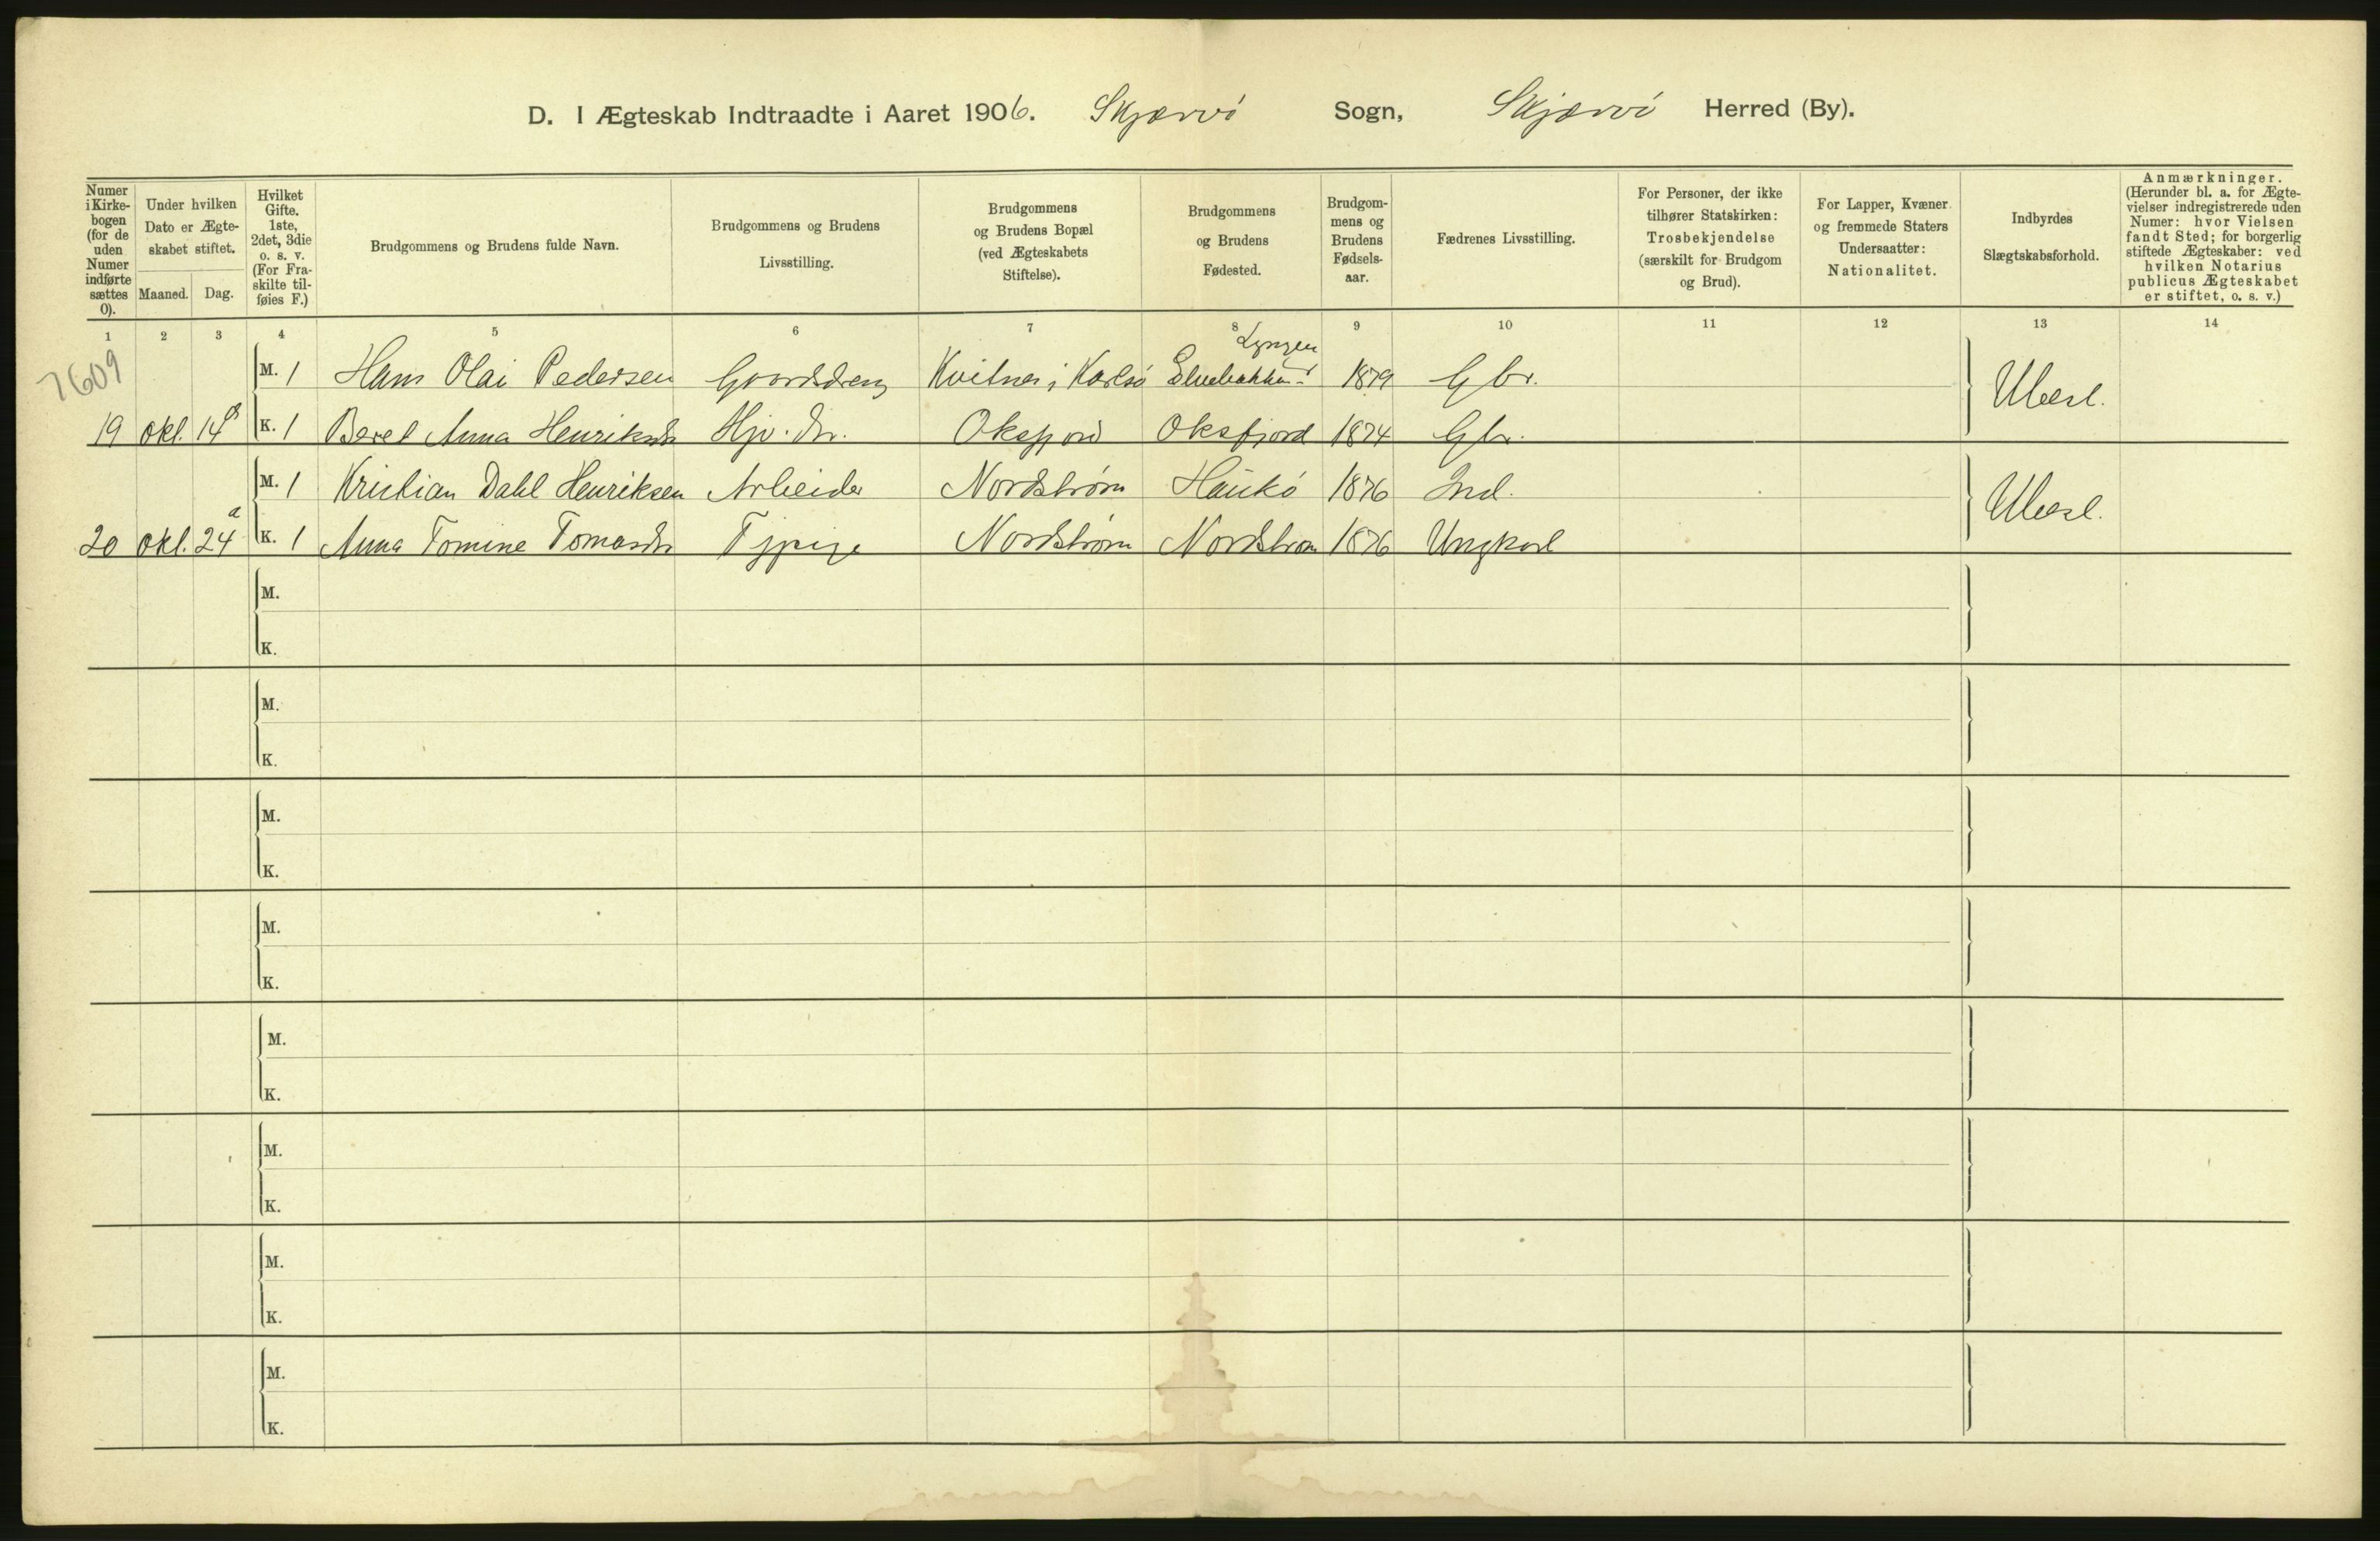 D. I Ægteskab Indtraadte i Aaret 1906. Skjærvö Sogn, Skjærvö Herred (By).
Numer i Kirke-bogen (for de uden Numer indførte sættes 0).
Under hvilken Dato er Ægte-skabet stiftet.
Maaned. Dag.
Hvilket Gifte. 1ste, 2det, 3die o. s. v. (For Fra-skilte til-føies F.)
Brudgommens og Brudens fulde Navn.
Brudgommens og Brudens Livsstilling.
Brudgommens og Brudens Bopæl (ved Ægteskabets Stiftelse).
Brudgommens og Brudens Fødested.
Brudgom-mens og Brudens Fødsels-aar.
Fædrenes Livsstilling.
For Personer, der ikke tilhører Statskirken: Trosbekjendelse (særskilt for Brudgom og Brud).
For Lapper, Kvæner og fremmede Staters Undersaatter: Nationalitet.
Indbyrdes Slægtskabsforhold.
Anmærkninger. (Herunder bl. a. for Ægte-vielser indregistrerede uden Numer: hvor Vielsen fandt Sted; for borgerlig stiftede Ægteskaber: ved hvilken Notarius publicus Ægteskabet er stiftet, o. s. v.)
1 2 3 4 5 6 7 8 9 10 11 12 13 14
7609
Lyngen
M. 1 Hans Olai Pedersen Gaardsdreng Kvitnes i Karlsö Elvebakken 1879 Gbr.
Ubesl.
19 Okt. 14 K. 1 Beret Anna Henriksdr Hjv. dr. Oksfjord Oksfjord 1874 Gbr.
M. 1 Kristian Dahl Henriksen Arbeider Nordstrøm Haukö 1876 Ind.
Ubesl.
20 Okt. 24 K. 1 Anna Tomine Tomasdr Tjpige Nordstrøm Nordstrøm 1876 Ungkarl
M.
K.
M.
K.
M.
K.
M.
K.
M.
K.
M.
K.
M.
K.
M.
K.